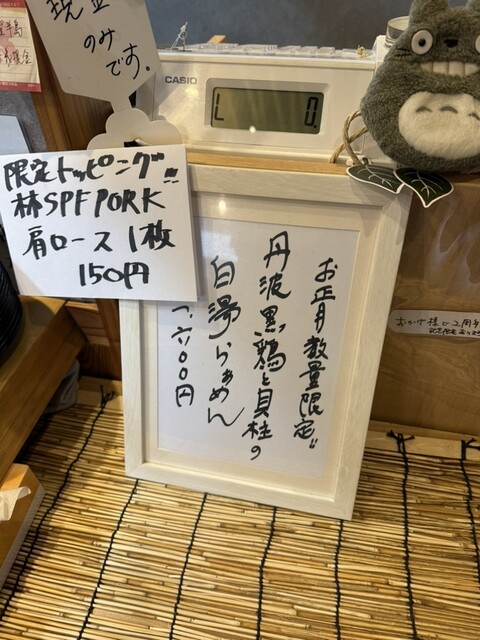 現金
のみです。
CASIO
L 0.
限定トッピング!!
林SPF PORK
肩ロース1枚
150円
お正月数量限定!!
丹波黒鶏と貝柱の
白湯らぁめん
一、六〇〇円
おかげ様で2周年